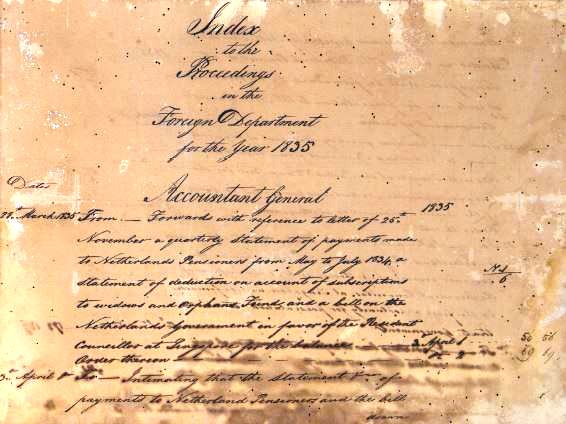 Index
to the
Proceedings
in the
Foreign Department
for the Year 1835
Dates
Accountant General 1835
28th March 1835 From — Forward with reference to letter of 25th
November a quarterly Statement of payments made
to Netherlands Pensioners from May to July 1834, a
Statement of deduction on account of subscriptions
to widows and orphans Fund, and a bill on the
Netherlands Government in favor of the Resident
Councillor at for the balance — 3 April
Order thereon — 2
April To — Intimating that the Statement of
payments to Netherland Pensioners and the bill
drawn